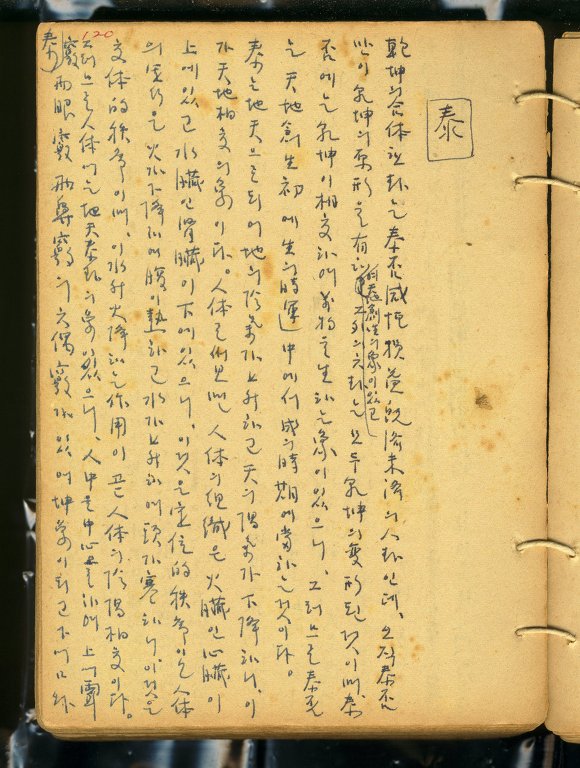 泰
乾坤의合体한卦는泰否咸恒損益既濟未濟의八卦인데、오직泰否
만이乾坤의原形을有하고 그外의六卦는모두乾坤의變形된것이며、泰
否에는乾坤이相交하여萬物を生하는象이있으니、그러므로泰否
는天地創生初에生의時運」中에서成의時期에當하는것이다。
泰는地天으로되어地의陰氣가上升하고天의陽氣가下降하니、이
가天地相交의象이다。人体로써보면人体의組織은火臟인心臟이
上에있고水臟인腎臟이下에있으니、이것은定位的秩序이오人体
의運行은火가下降하여腹이熱하고水가上升하여頭가寒하니、이것은
交体的秩序이며、이水升火降하는作用이곧人体의陰陽相交이다。
그러므로人体에는地天泰卦의象이있으니、人中을中心으로하여上에耳
竅兩眼竅兩鼻竅의六偶竅가있어坤象이되고下에口와
泰
120